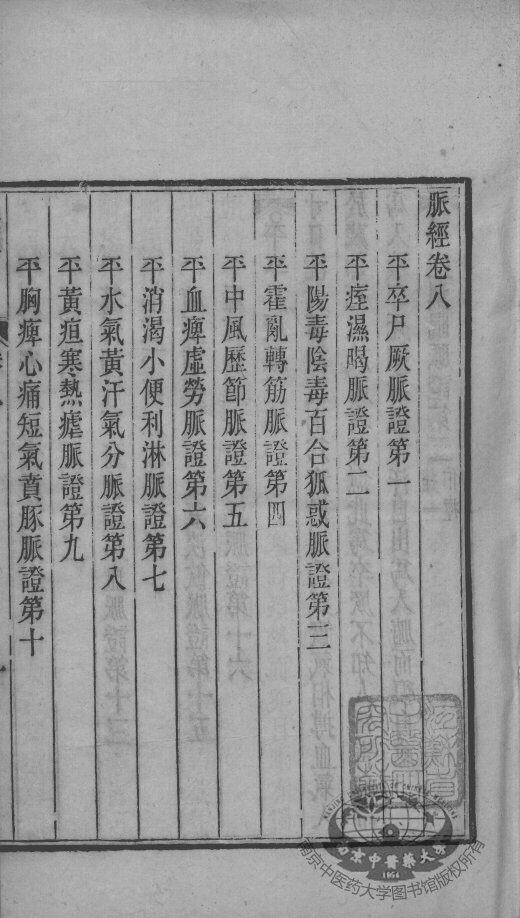 脈經卷八
平卒尸厥脈證第一
平痙濕暍脈證第二
平陽毒陰毒百合狐惑脈證第三
平霍亂轉筋脈證第四
平中風歷節脈證第五
平血痺虛勞脈證第六
平消渴小便利淋脈證第七
平水氣黃汗氣分脈證第八
平黃疸寒熱瘧脈證第九
平胸痺心痛短氣賁豚脈證第十
南京中醫藥大學
1954
南京中医药大学图书馆版权所有